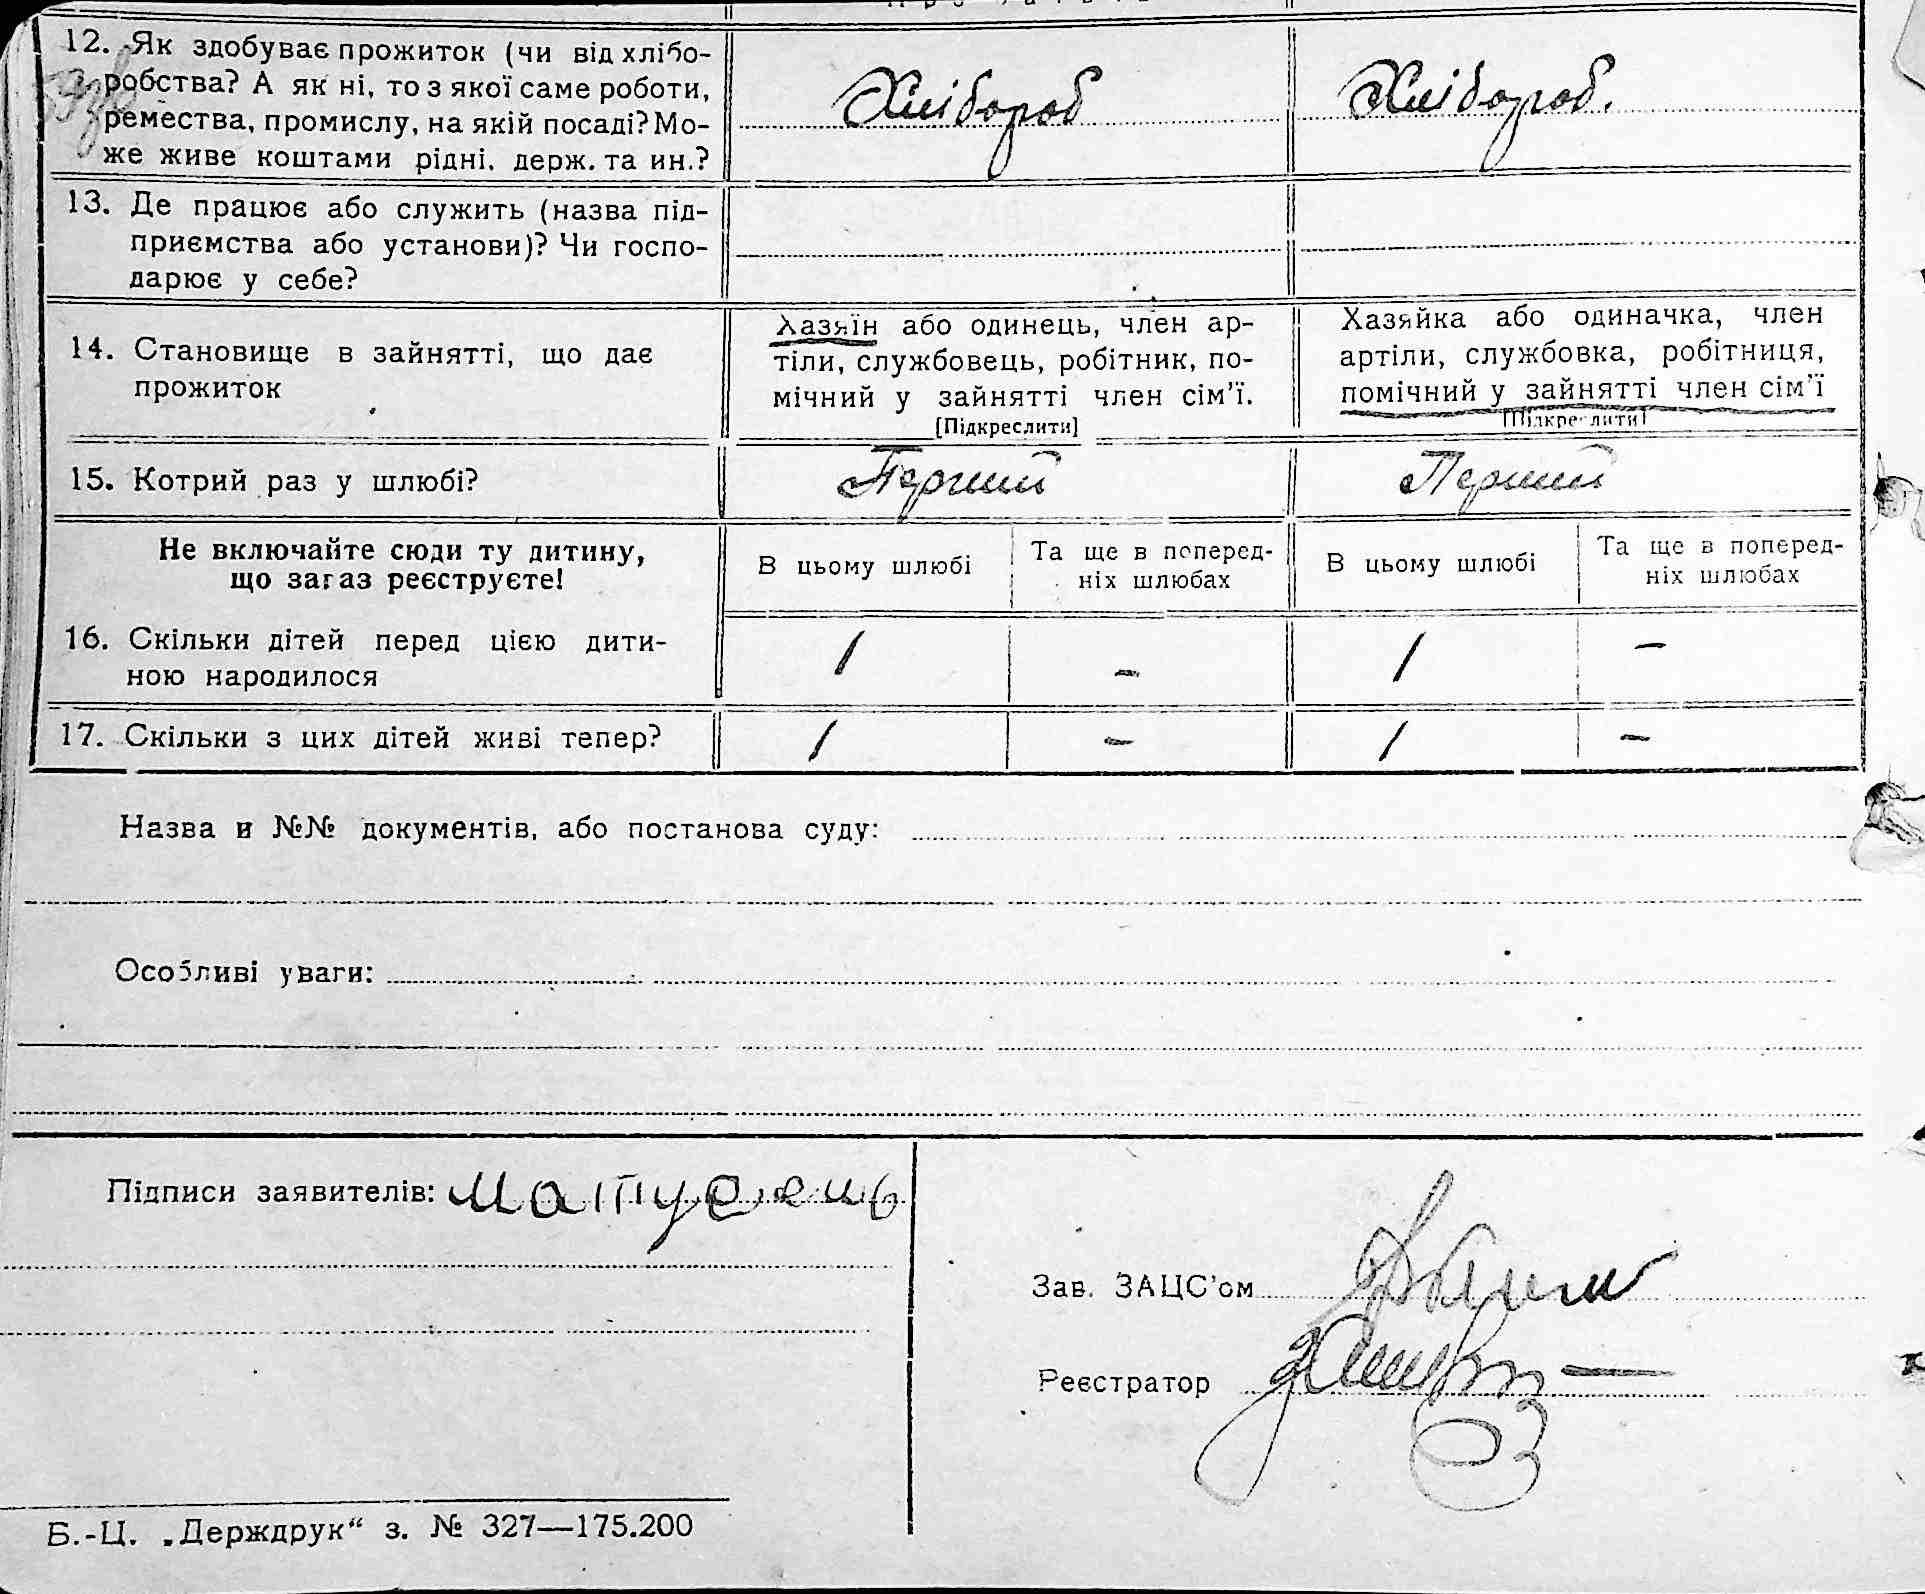 12. Як здобуває прожиток (чи від хлібо-
робства? А як ні, то з якої саме роботи,
ремества, промислу, на якій посаді? Мо-
же живе коштами рідні, держ. та ин.?
Хлібороб
Хлібороб.
13. Де працює або служить (назва під-
приємства або установи)? Чи госпо-
дарює у себе?
14. Становище в зайнятті, що дає
прожиток
Хазяїн або одинець, член ар-
тіли, службовець, робітник, по-
мічний у зайнятті член сім'ї.
[Підкреслити]
Хазяйка або одиначка, член
артіли, службовка, робітниця,
помічний у зайнятті член сім'ї
[Підкреслити]
15. Котрий раз у шлюбі?
Перший
Перший
Не включайте сюди ту дитину,
що зараз реєструєте!
В цьому шлюбі
Та ще в поперед-
ніх шлюбах
В цьому шлюбі
Та ще в поперед-
ніх шлюбах
16. Скільки дітей перед цією дити-
ною народилося
1 - 1 -
17. Скільки з цих дітей живі тепер?
1 - 1 -
Назва и №№ документів, або постанова суду:
Особливі уваги:
Підписи заявителів:
Зав. ЗАЦС'ом
Реєстратор
Б.-Ц. „Держдрук“ з. № 327—175.200